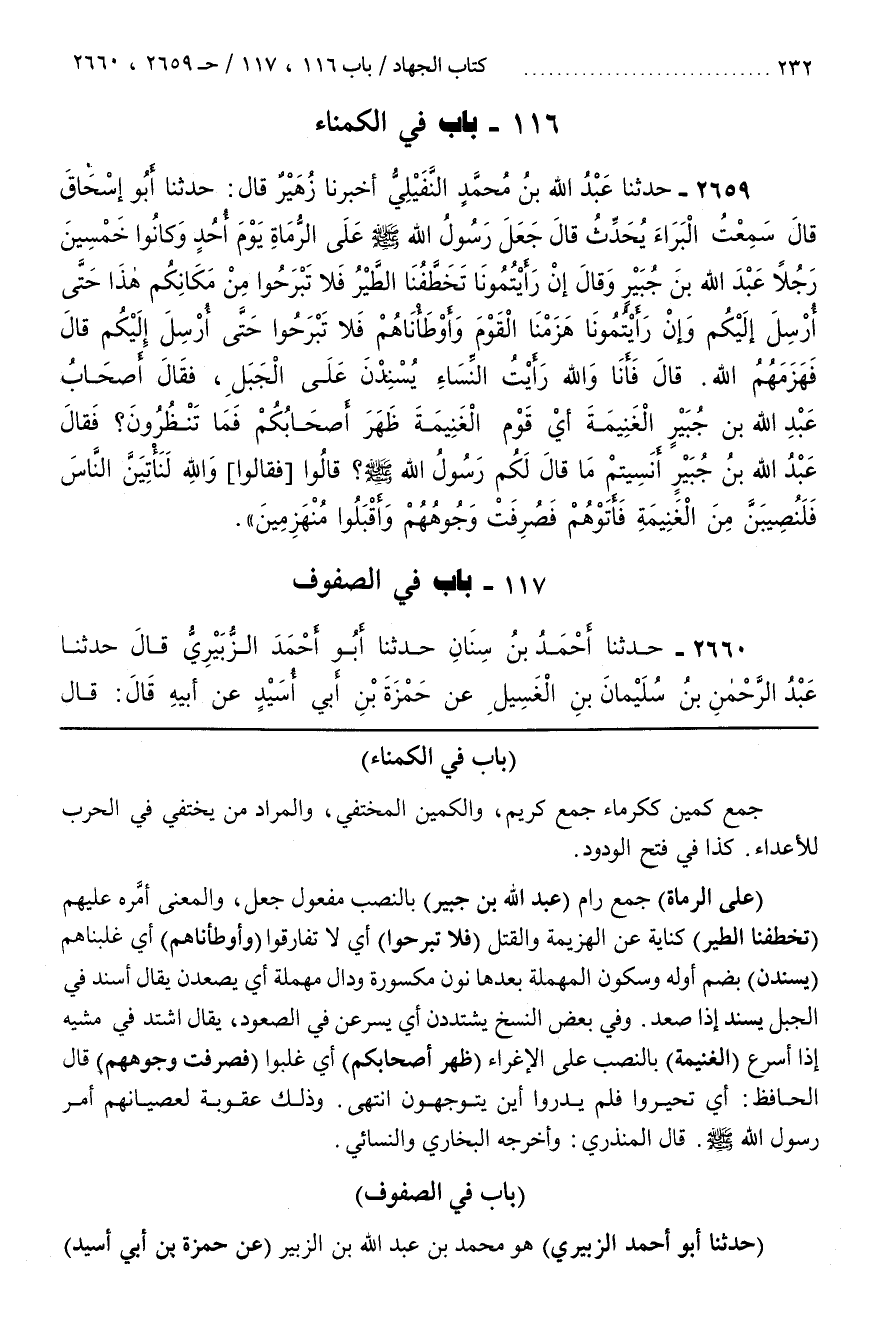 ٢٣٢ .............................. كتاب الجهاد / باب ١١٦ ، ١١٧ / حـ ٢٦٥٩ ، ٢٦٦٠
١١٦ - باب في الكمناء
٢٦٥٩ - حدثنا عَبْدُ الله بنُ مُحمَّدٍ النُّفَيْلِيُّ أخبرنا زُهَيْرٌ قال: حدثنا أَبُو إسْحَاقَ
قالَ سَمِعْتُ الْبَرَاءَ يُحَدِّثُ قالَ جَعَلَ رَسُولُ الله ﷺ عَلَى الرُّمَاةِ يَوْمَ أُحُدٍ وَكانُوا خَمْسِينَ
رَجُلاً عَبْدَ الله بنَ جُبَيْرٍ وَقالَ إنْ رَأَيْتُمُونَا تَخَطَّفُنَا الطَّيْرُ فَلا تَبْرَحُوا مِنْ مَكَانِكُم هٰذَا حَتَّى
أُرْسِلَ إلَيْكُم وَإنْ رَأَيْتُمُونَا هَزَمْنَا الْقَوْمَ وَأَوْطَأْنَاهُمْ فَلا تَبْرَحُوا حَتَّى أُرْسِلَ إِلَيْكُم قالَ
فَهَزَمَهُمُ الله. قالَ فَأَنَا وَالله رَأَيْتُ النِّسَاءِ يُسْنِدْنَ عَلَـى الْجَبَلِ، فَقالَ أَصحَـابُ
عَبْدِ الله بن جُبَيْرٍ الْغَنِيمَـةَ أيْ قَوْمِ الْغَنِيمَـةَ ظَهَرَ أَصحَـابُكُمْ فَمَا تَنْـظُرُونَ؟ فَقالَ
عَبْدُ الله بنُ جُبَيْرٍ أَنَسِيتمْ مَا قالَ لَكُم رَسُولُ الله ﷺ؟ قالُوا [فقالوا] وَاللهِ لَنَأْتِيَنَّ النَّاسَ
فَلَنُصِيبَنَّ مِنَ الْغَنِيمَةِ فَأَتَوْهُمْ فَصُرِفَتْ وَجُوهُهُمْ وَأَقْبَلُوا مُنْهَزِمِينَ».
١١٧ - باب في الصفوف
٢٦٦٠ - حـدثنا أَحْمَـدُ بنُ سِنَانٍ حـدثنا أَبُـو أَحْمَدَ الـزُّبَيْرِيُّ قـالَ حدثنـا
عَبْدُ الرَّحْمٰنِ بنُ سُلَيْمانَ بنِ الْغَسِيلِ عن حَمْزَةَ بْنِ أَبي أُسَيْدٍ عن أبيهِ قَالَ: قـال
(باب في الكمناء)
جمع كمين ككرماء جمع كريم، والكمين المختفي، والمراد من يختفي في الحرب
للأعداء. كذا في فتح الودود.
(على الرماة) جمع رام (عبد الله بن جبير) بالنصب مفعول جعل، والمعنى أمَّره عليهم
(تخطفنا الطير) كناية عن الهزيمة والقتل (فلا تبرحوا) أي لا تفارقوا (وأوطأناهم) أي غلبناهم
(يسندن) بضم أوله وسكون المهملة بعدها نون مكسورة ودال مهملة أي يصعدن يقال أسند في
الجبل يسند إذا صعد. وفي بعض النسخ يشتددن أي يسرعن في الصعود، يقال اشتد في مشيه
إذا أسرع (الغنيمة) بالنصب على الإغراء (ظهر أصحابكم) أي غلبوا (فصرفت وجوههم) قال
الحـافظ: أي تحيـروا فلم يـدروا أين يتـوجهـون انتهى. وذلـك عقـوبـة لعصيـانهم أمـر
رسول الله ﷺ. قال المنذري: وأخرجه البخاري والنسائي.
(باب في الصفوف)
(حدثنا أبو أحمد الزبيري) هو محمد بن عبد الله بن الزبير (عن حمزة بن أبي أسيد)